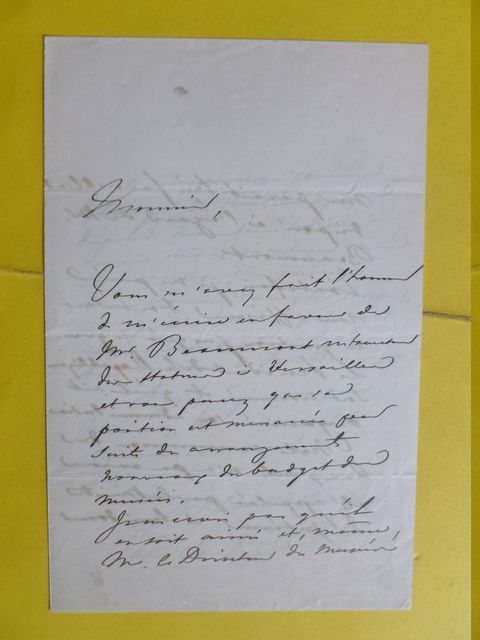 Monsieur,
Vous m'avez fait l'honneur
de m'écrire en faveur de
Mr. Beaumont restaurateur
des statues à Versailles
et vous pensez que sa
position est menacée par
suite du arrangement
nouveau du budget des
musées.
Je ne crois pas qu'il
en soit ainsi et, même,
M. le Directeur des Musées